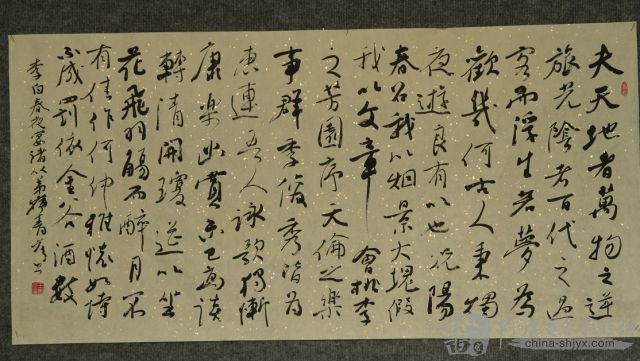 夫天地者萬物之逆
旅光陰者百代之過
客而浮生若夢為
歡幾何古人秉燭
夜遊良有以也況陽
春召我以烟景大塊假
我以文章會桃李
之芳園序天倫之樂
事群季俊秀皆為
惠連吾人詠歌獨慚
康樂幽賞未已高談
轉清開瓊筵以坐
花飛羽觴而醉月不
有佳作何伸雅懷如詩
不成罰依金谷酒數
李白春夜宴諸從弟
china-shjyx.com